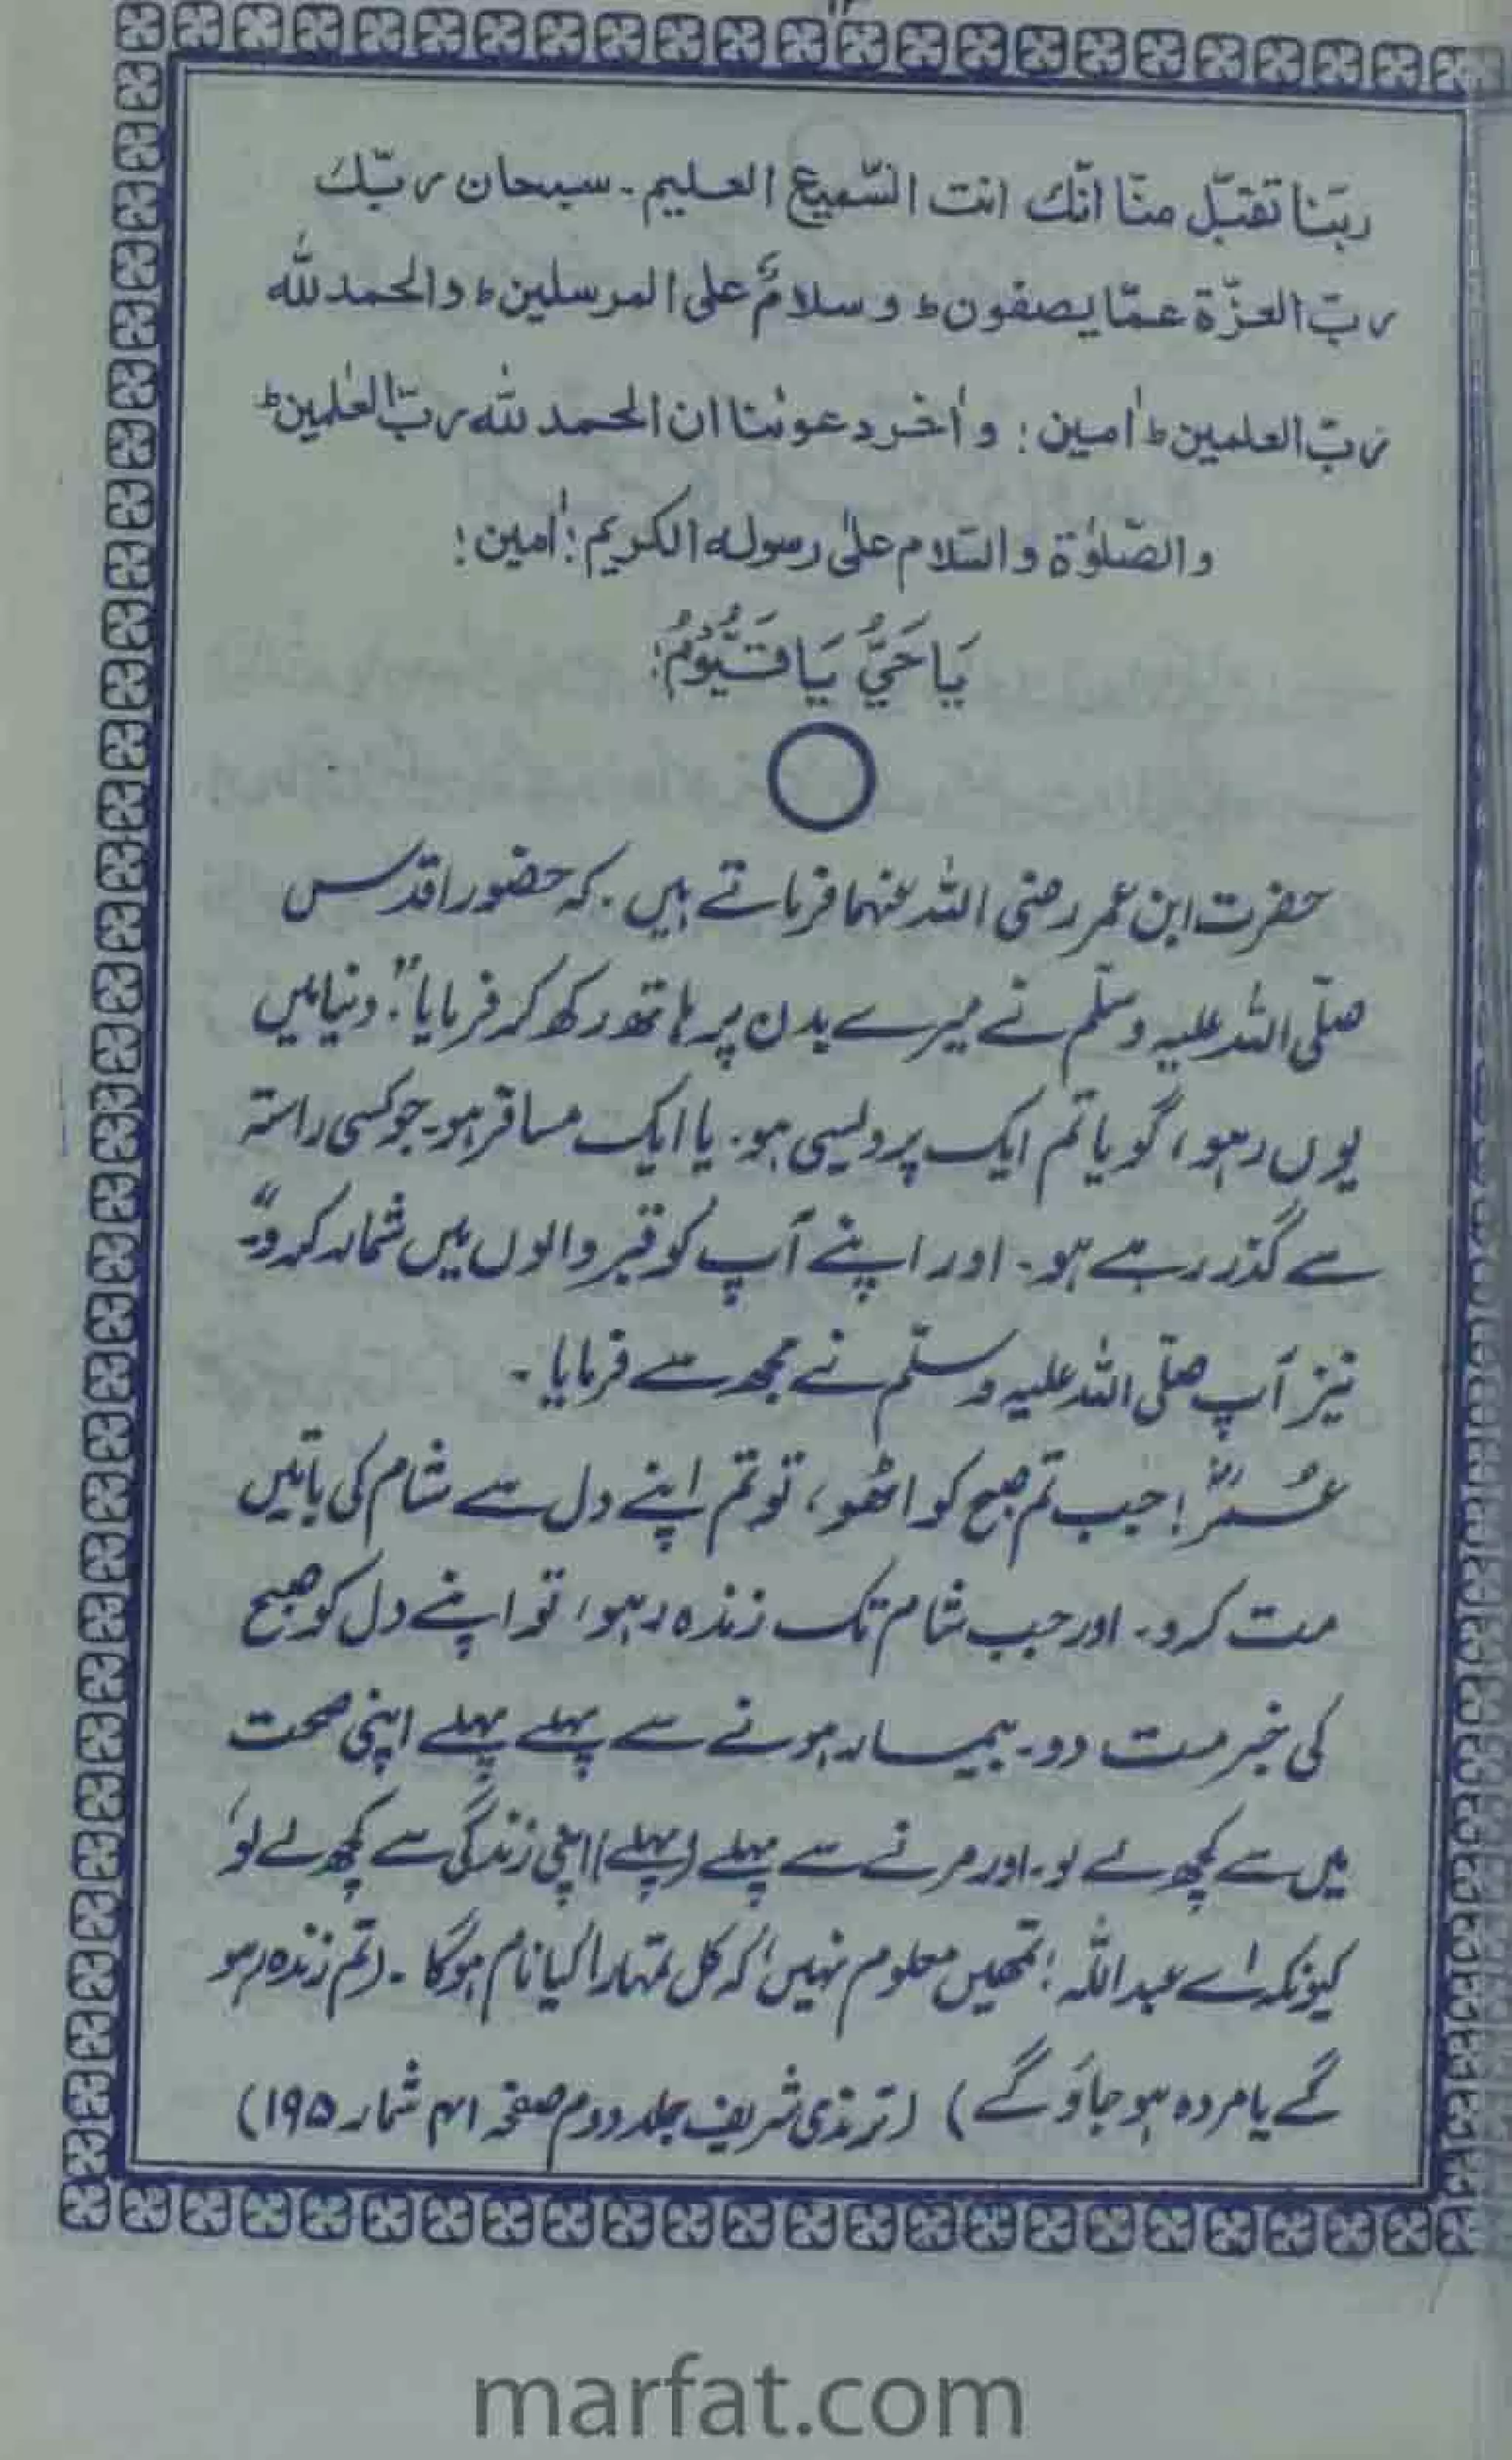 ۱۲
ربّنا تقبّل منّا انّك انت السّميع العليم۔ سبحان ربّك
ربّ العزّة عمّا يصفون ط و سلامٌ على المرسلين ط والحمد لله
ربّ العلمين ط اٰمين : و اٰخر دعوٰنا ان الحمد لله ربّ العٰلمين ط
والصّلوٰة والسّلام علىٰ رسوله الكريم : اٰمين :
يَا حَيُّ يَا قَيُّوْمُ :
حضرت ابن عمر رضی اللہ عنہما فرماتے ہیں۔ کہ حضور اقدس
صلّی اللہ علیہ وسلّم نے میرے بدن پر ہاتھ رکھ کر فرمایا"۔ دنیا میں
یوں رہو، گویا تم ایک پردیسی ہو۔ یا ایک مسافر ہو۔ جو کسی راستہ
سے گذر رہے ہو۔ اور اپنے آپ کو قبر والوں میں شمار کرو"۔
نیز آپ صلّی اللہ علیہ وسلّم نے مجھ سے فرمایا۔
عمرؓ! جب تم صبح کو اٹھو، تو تم اپنے دل سے شام کی باتیں
مت کرو۔ اور جب شام تک زندہ رہو، تو اپنے دل کو صبح
کی خبر مت دو۔ بیمار ہونے سے پہلے پہلے اپنی صحت
میں سے کچھ لے لو۔ اور مرنے سے پہلے (پہلے) اپنی زندگی سے کچھ لے لو،
کیونکہ اے عبداللہ! تمھیں معلوم نہیں، کہ کل تمہارا کیا نام ہوگا۔ (تم زندہ رہو
گے یا مردہ ہو جاؤ گے) (ترمذی شریف جلد دوم صفحہ ۴۱ شمار ۱۹۵)
marfat.com